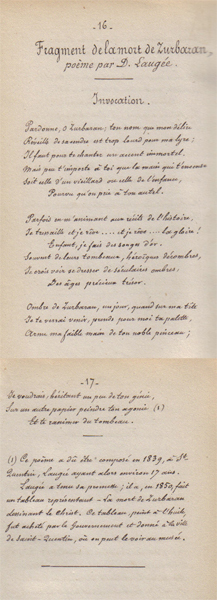 - 16 -
Fragment de la mort de Zurbaran,
poème par D. Laugée.
Invocation.
Pardonne, ô Zurbaran; ton nom qui mon délire
Réveille de sa cendre est trop lourd pour ma lyre;
Il faut pour te chanter un accent immortel.
Mais peu t'importe à toi que la main qui t'encense
Soit celle d'un vieillard ou celle de l'enfance,
Pourvu qu'on prie à ton autel.
Parfois en m'animant aux récits de l'histoire,
Je travaille et je rêve .... et je rêve .... la gloire!
Enfant, je fais des songes d'or.
Souvent de leurs tombeaux, héroïques décombres,
Je crois voir se dresser de séculaires ombres.
Des âges précieux trésor.
Ombre de Zurbaran, un jour, quand sur ma tête
Je te verrai venir, prends pour moi ta palette,
Arme ma faible main de ton noble pinceau;
- 17 -
Je voudrais, héritant un peu de ton génie,
Sur un autre papier peindre ton agonie (1)
Et te ranimer du tombeau.
(1) Ce poème a dû être composé en 1839, à St
Quentin, Laugée ayant alors environ 17 ans.
Laugée a tenu sa promesse; il a, en 1850, fait
un tableau représentant - La mort de Zurbaran
dessinant le Christ. Ce tableau, peint à l'huile,
fut acheté par le Gouvernement et donné à la ville
de Saint-Quentin, où on peut le voir au musée.